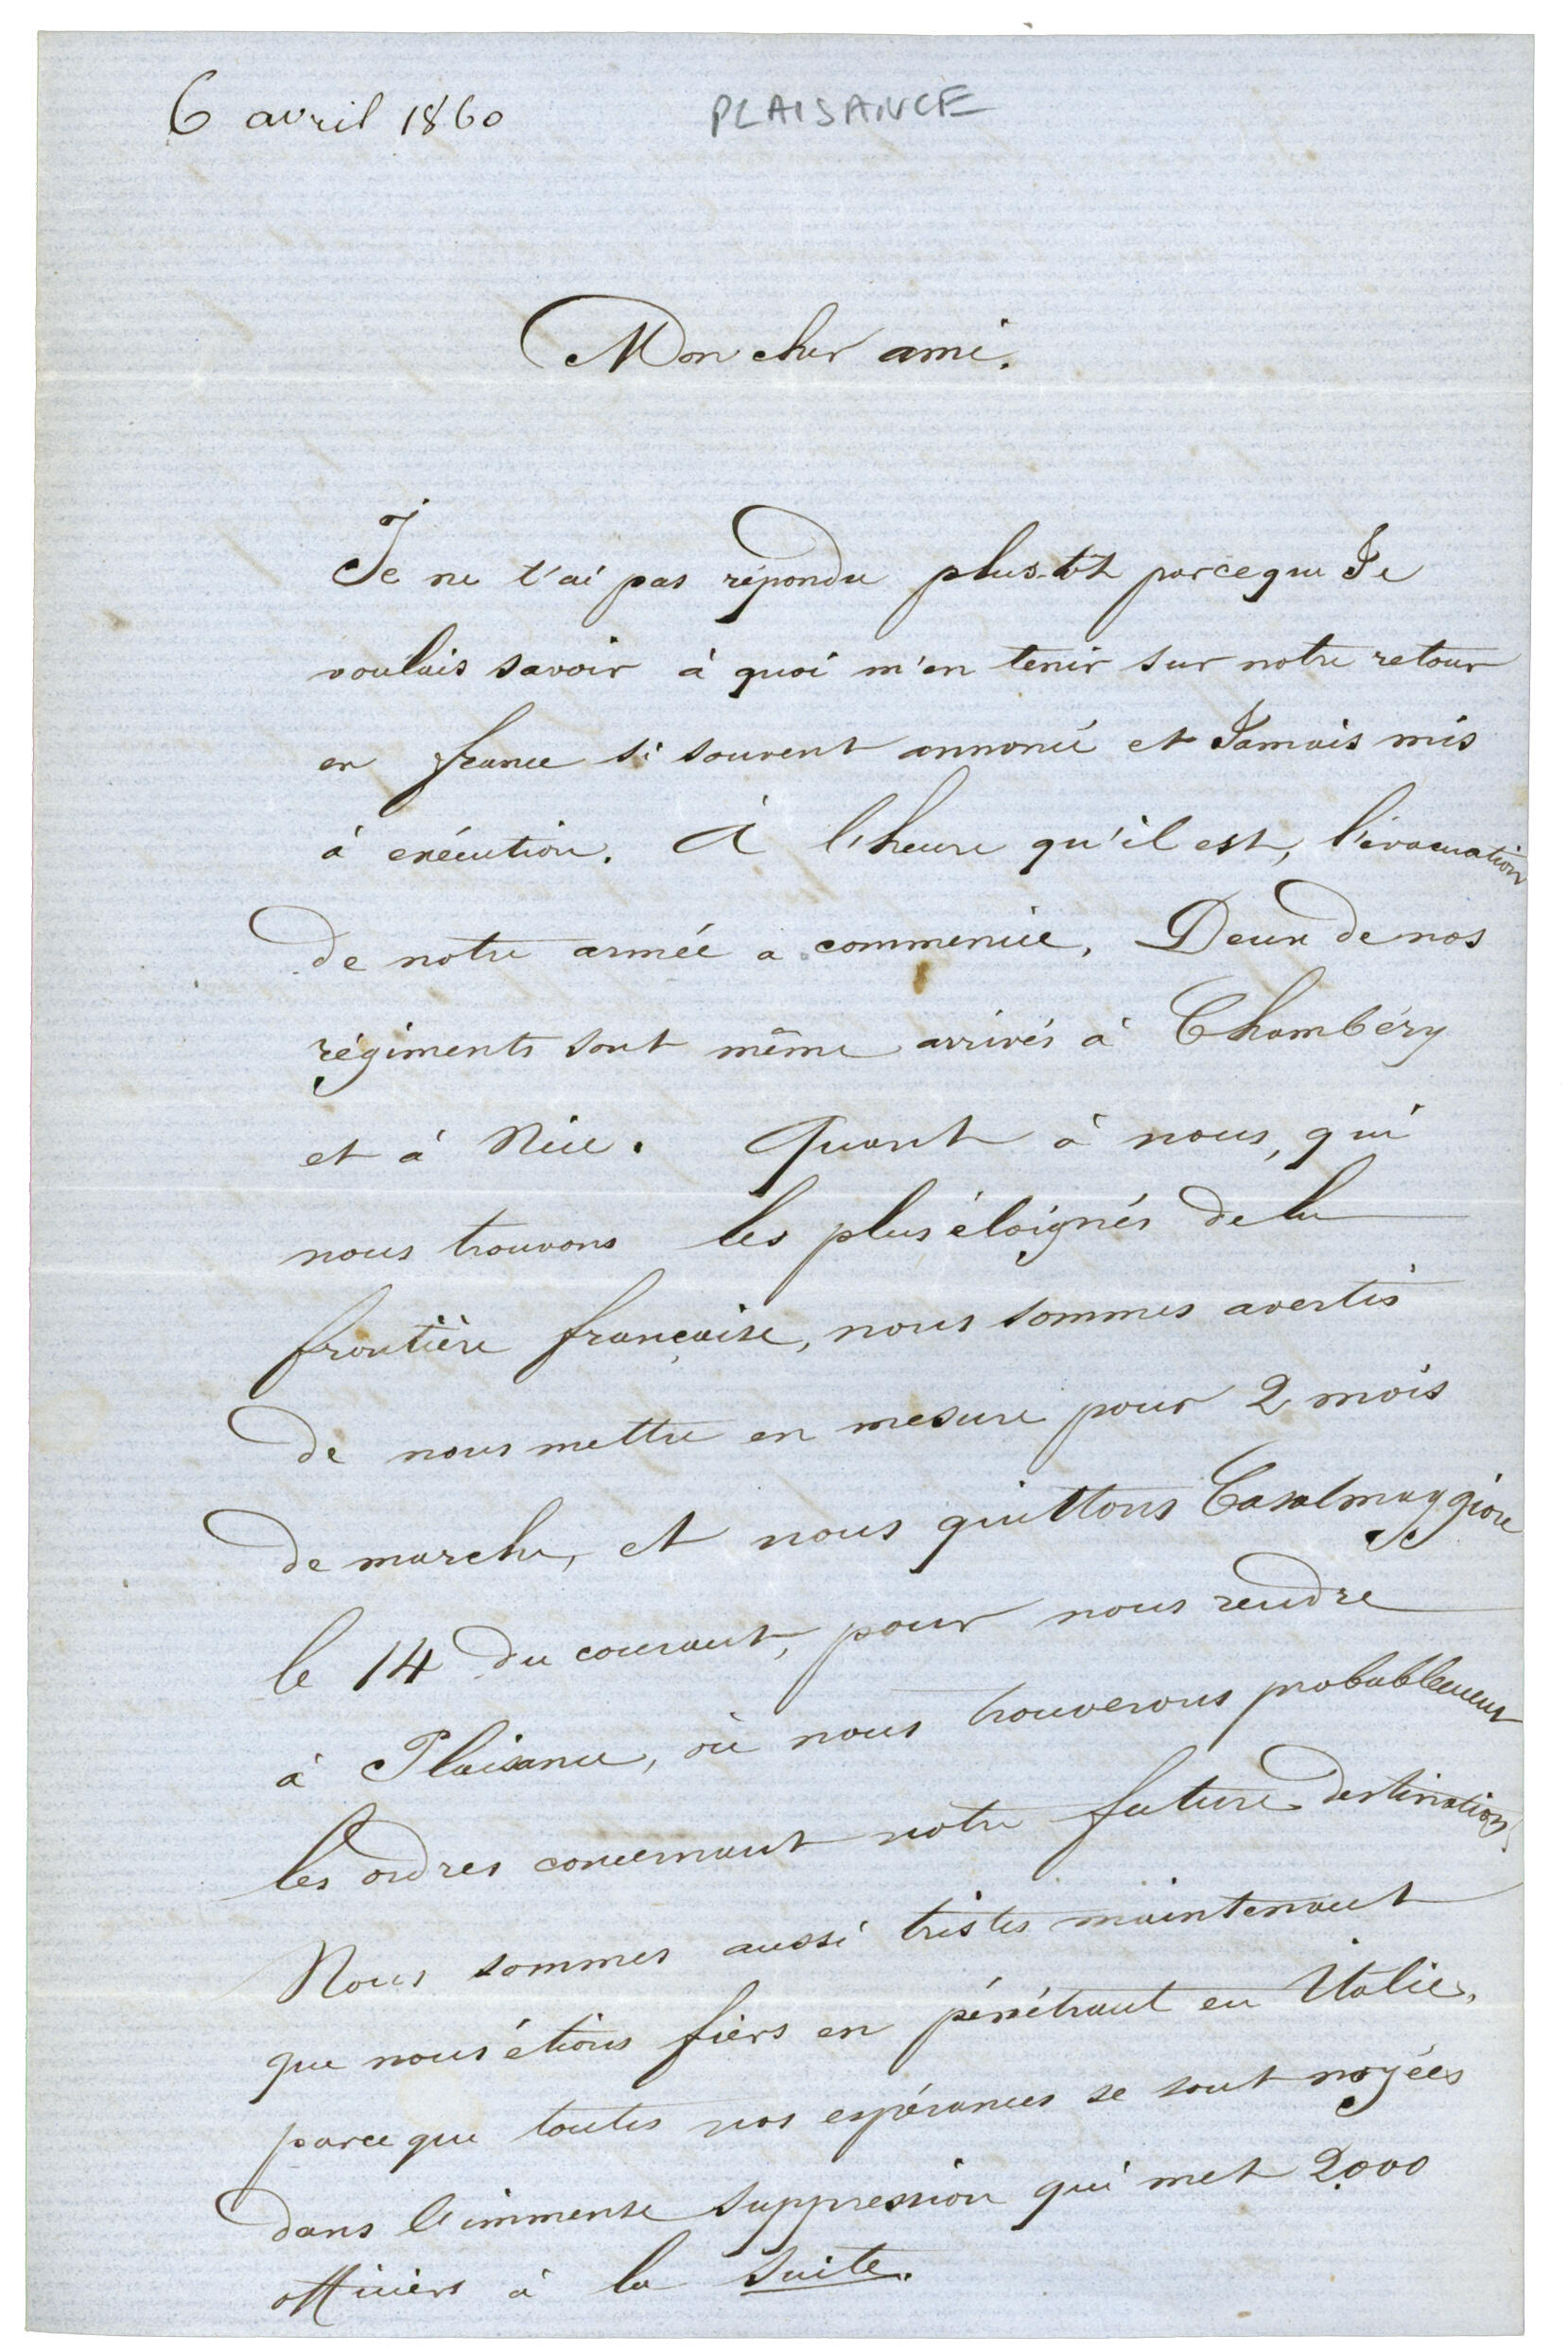 6 avril 1860 PLAISANCE
Mon cher ami.
Je ne t'ai pas répondu plus-tôt parceque Je
voulais savoir à quoi m'en tenir sur notre retour
en france si souvent annoncé et Jamais mis
à exécution. A l'heure qu'il est, l'évacuation
de notre armée a commencée. Deux de nos
régiments sont même arrivés à Chambéry
et à Nice. Quant à nous, qui
nous trouvons les plus éloignés de la
frontière française, nous sommes avertis
de nous mettre en mesure pour 2 mois
de marche, et nous quittons Casalmaggiore
le 14 du courant, pour nous rendre
à Plaisance, où nous trouverons probablement
les ordres concernant notre future destination.
Nous sommes aussi tristes maintenant
que nous étions fiers en pénétrant en Italie,
parce que toutes nos espérances se sont noyées
dans l'immense suppression qui met 2.000
officiers à la suite.